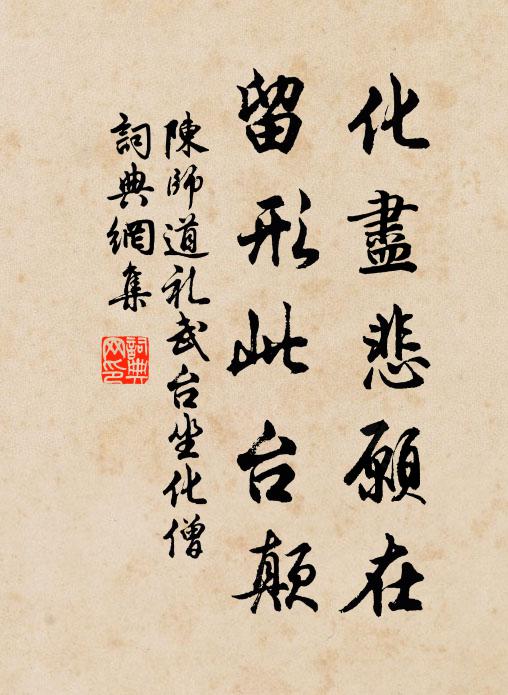 化盡悲願在
留形此台顛
陳師道礼武台坐化僧
詞典網集
詞典网印